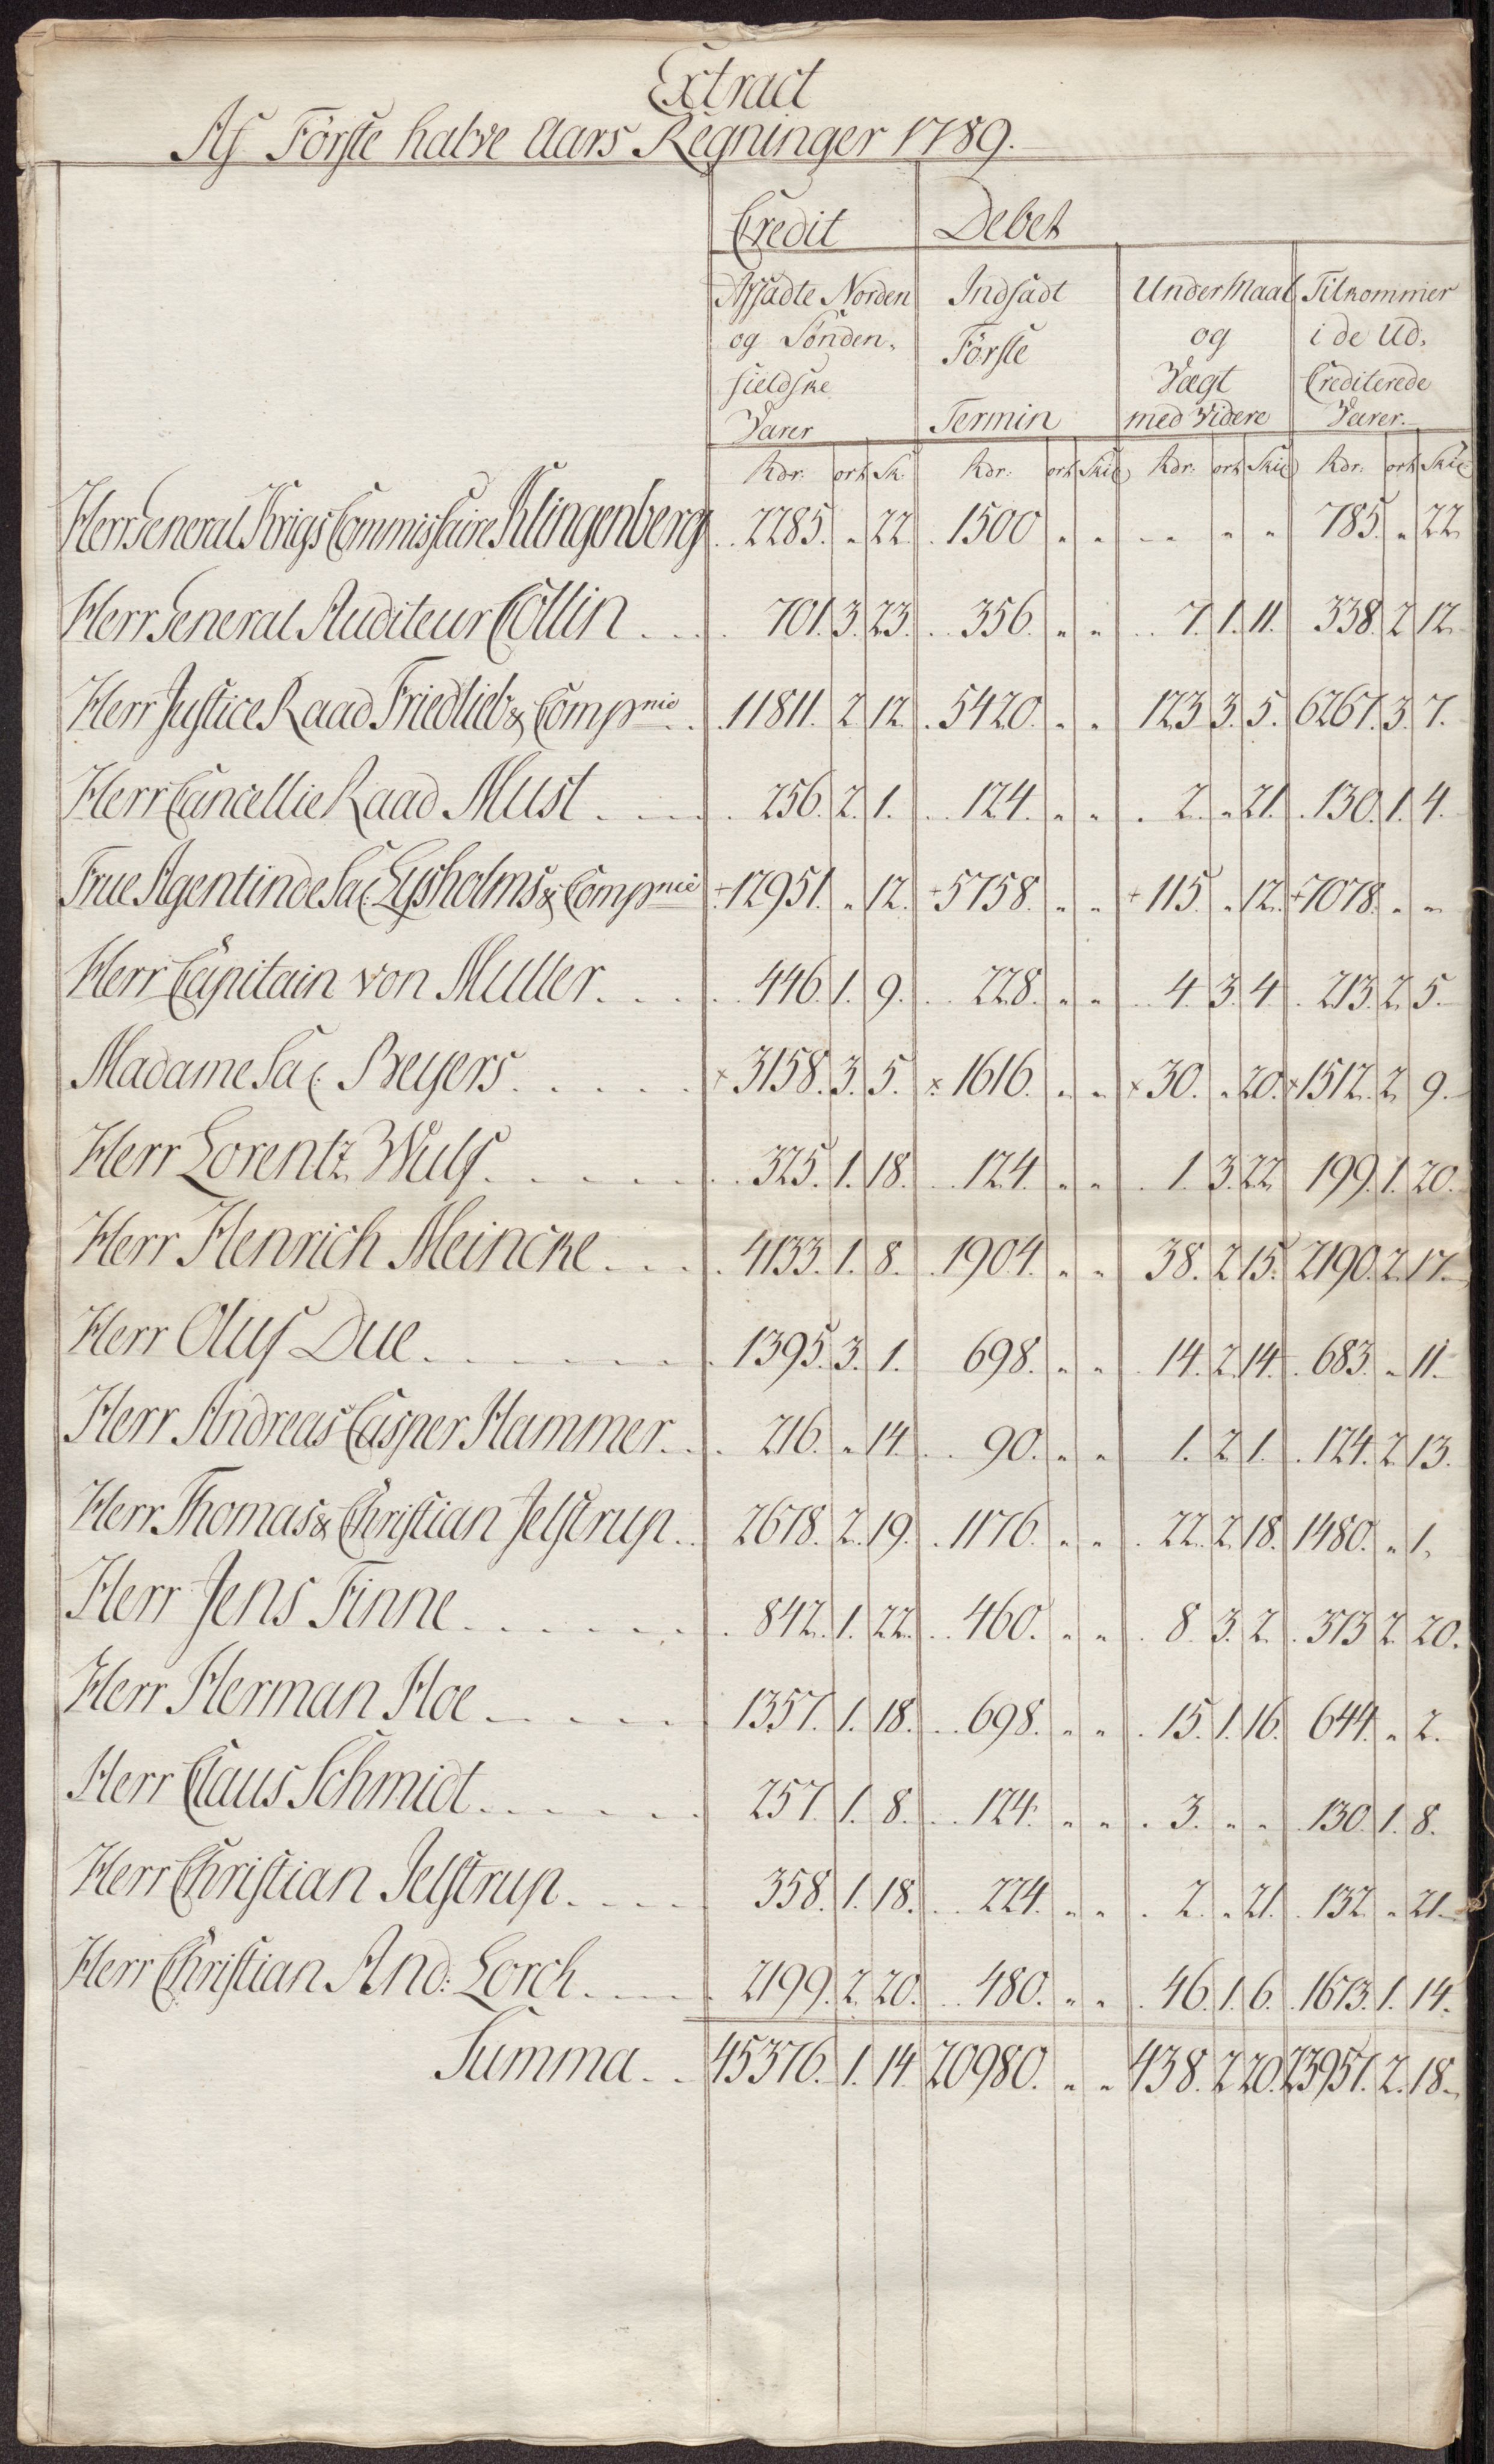 Extract
Af Förste halve Aars Regninger 1789.
Credit Debet
Afsadte Norden Indsadt UnderMaal Tilkommer
og Sønden, Förste og i de Ud,
fieldske Vægt Crediterede
Varer Termin med Videre Varer.
Rdr: ort Sk: Rdr: ort Skil Rdr: ort Skil Rdr: ort Skil
Herr General Krigs Commissaire Klingenberg .. 2285. " 22. 1500 " " -- " " 785. " 22.
Herr General Auditeur Collin .... 701. 3. 23. .. 356. " " .. 7. 1. 11. 338. 2 12.
Herr Justice Raad Friedlieb & Compnie .. 11811. 2 12. 5420. " " 123 3. 5. 6267. 3. 7.
Herr Cancellie Raad Must .... 256. 2. 1. .. 124. " " . 2. " 21. . 130. 1. 4.
Frue Agentinde Sal: Lysholms & Compnie + 12951. " 12. + 5758. " " + 115. " 12. + 7078. " "
Herr Capitain von Müller ..... 446. 1. 9. .. 228. " " .. 4. 3. 4. . 213. 2. 5.
Madame Sal: Beyers ..... × 3158. 3. 5. × 1616. " " × 30. " 20. × 1512. 2. 9.
Herr Lorentz Wulf ...... 325. 1. 18. .. 124. " " . 1. 3. 22 199. 1. 20.
Herr Henrich Meincke .... 4133. 1. 8. . 1904. " " 38. 2. 15. 2190. 2. 17.
Herr Oluf Due ....... 1395. 3. 1. 698. " " . 14. 2. 14. . 683. " 11.
Herr Andreas Casper Hammer ... 216. " 14. .. 90. " " 1. 2. 1. . 124. 2. 13.
Herr Thomas & Christian Jelstrup .. 2678. 2. 19. . 1176. " " . 22. 2. 18. 1480. " 1.
Herr Jens Finne ....... 842. 1. 22. .. 460. " " . 8. 3. 2. . 373 2. 20.
Herr Herman Hoe ..... 1357. 1. 18. .. 698. " " . 15. 1. 16. 644. " 2.
Herr Claus Schmidt ...... 257. 1. 8. .. 124. " " . 3. " " . 130. 1. 8.
Herr Christian Jelstrup .... 358. 1. 18. .. 224. " " . 2. " 21. . 132. " 21.
Herr Christian And: Lorch .... 2199. 2. 20. .. 480. " " . 46. 1. 6. . 1673. 1. 14.
Summa .. 45376. 1. 14 20980. " " 438. 2 20. 23957. 2. 18.